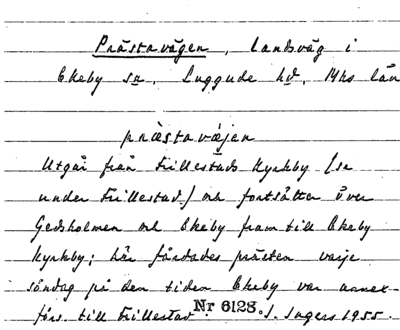 Prästavägen, landsväg i
Ekeby sn, Luggude hd, Mhs län
prästavæjen
Utgår från Frillestads kyrkby (se
under Frillestad) och fortsätter över
Gedsholmen och Ekeby fram till Ekeby
kyrkby; här färdades prästen varje
söndag på den tiden Ekeby var annex-
förs. till Frillestad. Nr 6128. I. Ingers 1955.